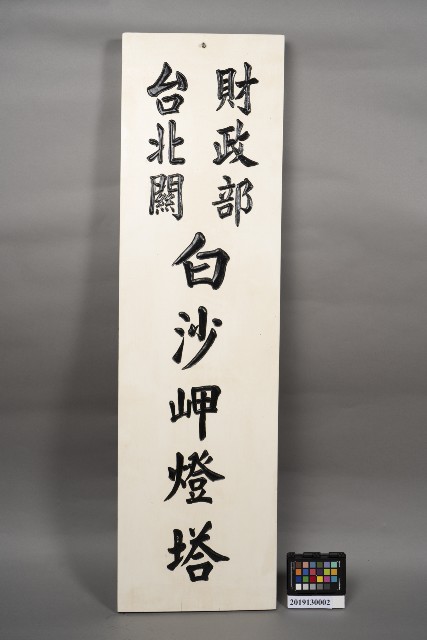 財政部
台北關
白沙岬燈塔
2019130002